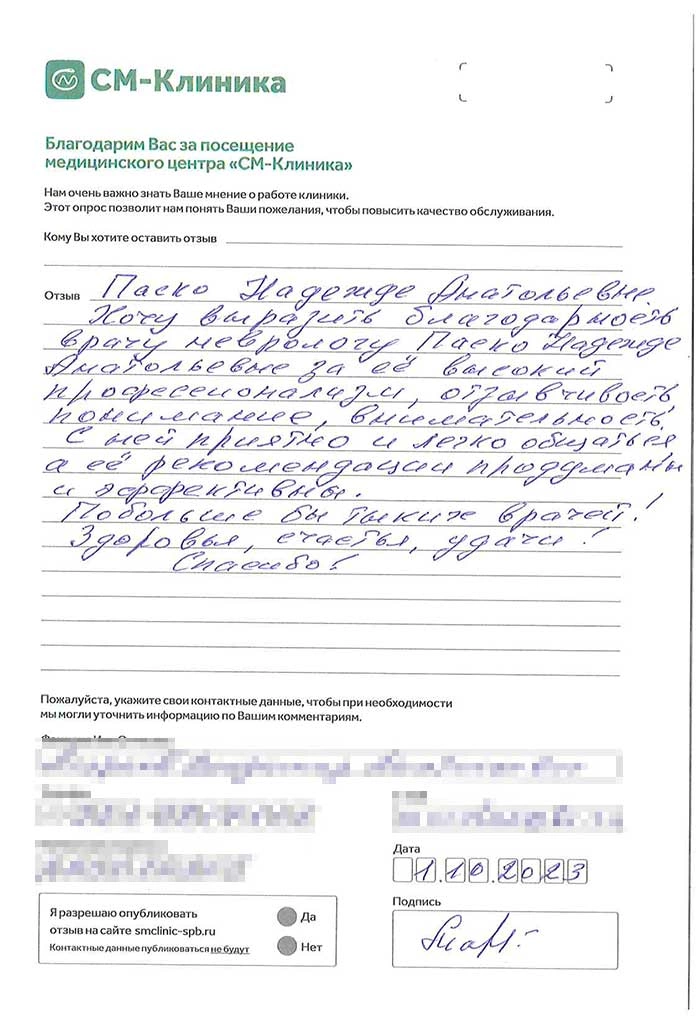 СМ-Клиника
Благодарим Вас за посещение
медицинского центра «СМ-Клиника»
Нам очень важно знать Ваше мнение о работе клиники.
Этот опрос позволит нам понять Ваши пожелания, чтобы повысить качество обслуживания.
Кому Вы хотите оставить отзыв
Отзыв Паско Надежде Анатольевне.
Хочу выразить благодарность
врачу неврологу Паско Надежде
Анатольевне за её высокий
профессионализм, отзывчивость,
понимание, внимательность.
С ней приятно и легко общаться
а её рекомендации продуманы
и эффективны.
Побольше бы таких врачей!
Здоровья, счастья, удачи!
Спасибо!
Пожалуйста, укажите свои контактные данные, чтобы при необходимости
мы могли уточнить информацию по Вашим комментариям.
Дата
1.10.2023
Я разрешаю опубликовать
отзыв на сайте smclinic-spb.ru
Контактные данные публиковаться не будут
Да
Нет
Подпись